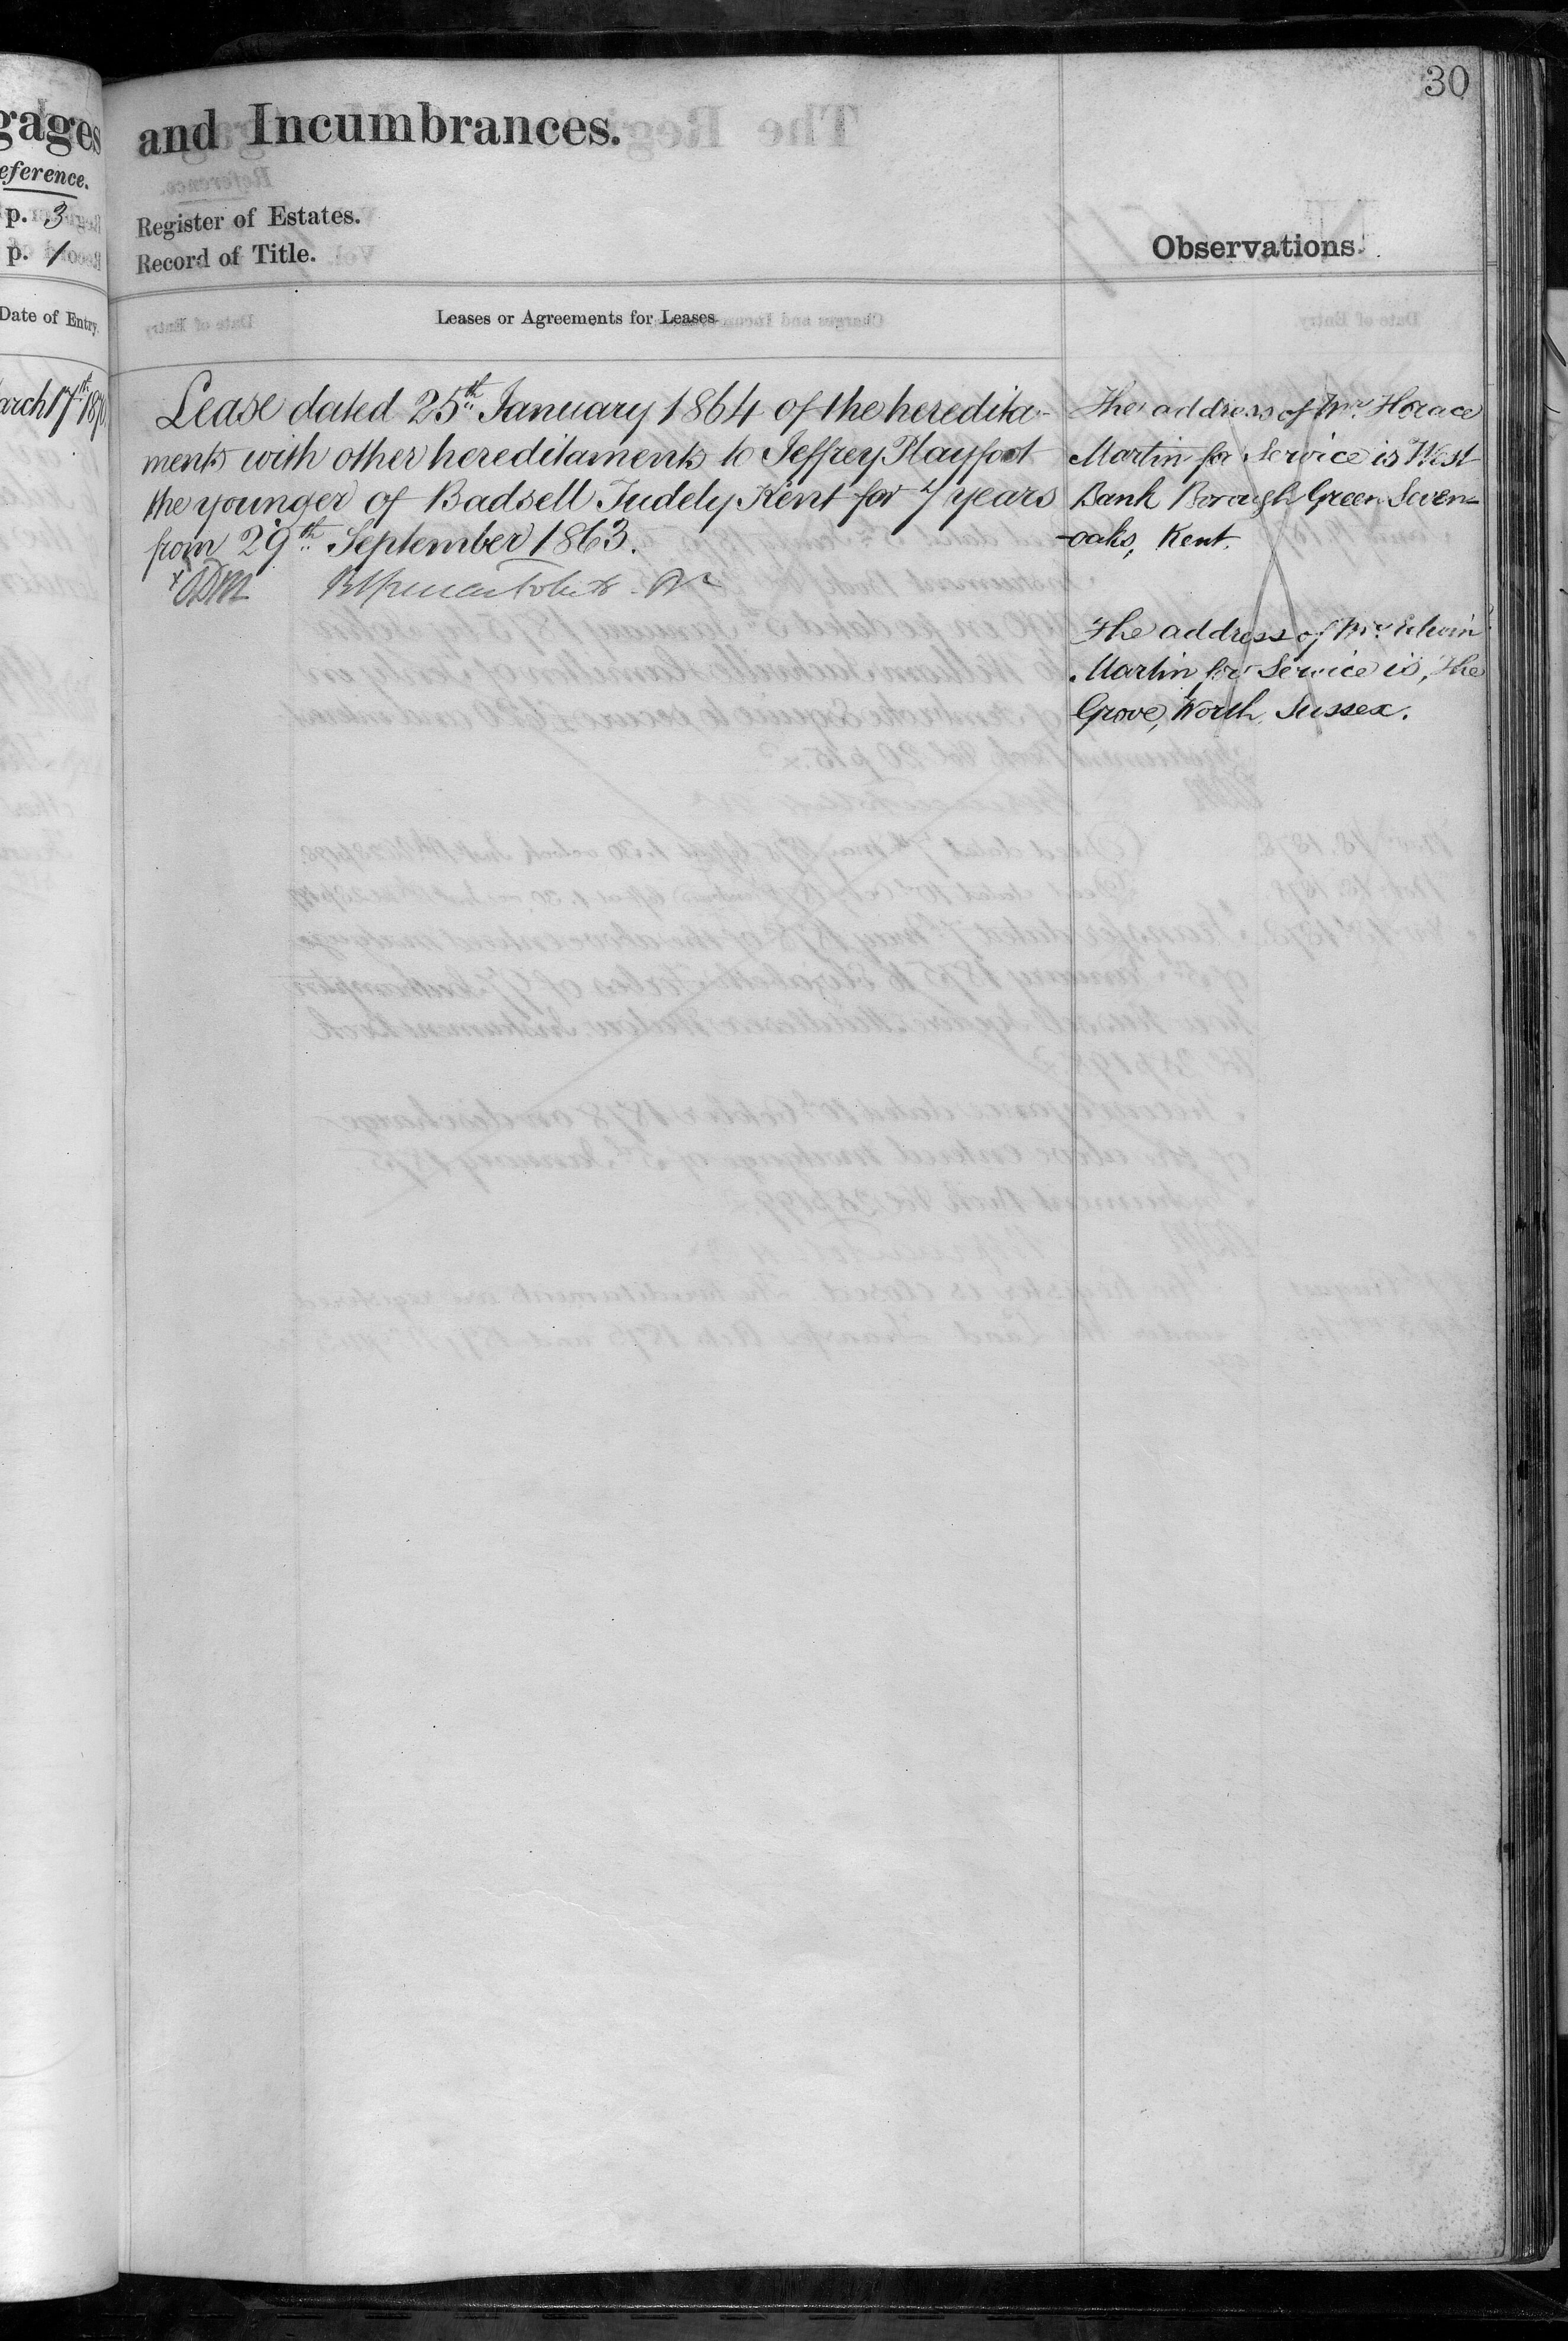 30
gages
eference.
p. 3
p. 1
Date of Entry.
arch 17th 1870
and Incumbrances.
Register of Estates.
Record of Title.
Leases or Agreements for Leases.
Lease dated 25th January 1864 of the heredita-
ments with other hereditaments to Jeffrey Playfoot
the younger of Badsell Tudely Kent for 7 years
from 29th September 1863.
Observations.
The address of Mr. Horace
Martin for Service is West
Bank Borough Green Seven-
-oaks, Kent.
The address of Mr. Edwin
Martin for Service is, The
Grove, Worth, Sussex.